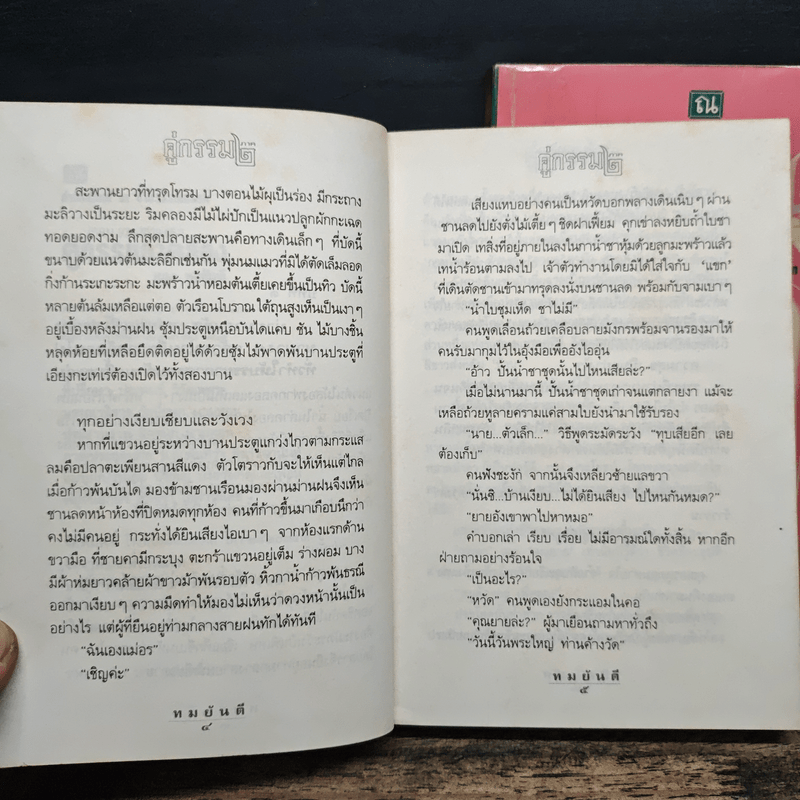 คู่กรรม ๒
สะพานยาวที่ทรุดโทรม บางตอนไม้ผุเป็นร่อง มีกระถาง
มะลิวางเป็นระยะ ริมคลองมีไม้ไผ่ปักเป็นแนวปลูกผักกะเฉด
ทอดยอดงาม ลึกสุดปลายสะพานคือทางเดินเล็กๆ ที่บัดนี้
ขนาบด้วยแนวต้นมะลิอีกเช่นกัน พุ่มนมแมวที่มิได้ตัดเล็มลอด
กิ่งก้านระเกะระกะ มะพร้าวน้ำหอมต้นเตี้ยเคยขึ้นเป็นทิว บัดนี้
หลายต้นล้มเหลือแต่ตอ ตัวเรือนโบราณใต้ถุนสูงเห็นเป็นเงาๆ
อยู่เบื้องหลังม่านฝน ซุ้มประตูเหนือบันไดแคบ ชัน ไม้บางชิ้น
หลุดห้อยที่เหลือยึดติดอยู่ได้ด้วยซุ้มไม้พาดพันบานประตูที่
เอียงกะเท่เร่ต้องเปิดไว้ทั้งสองบาน
ทุกอย่างเงียบเชียบและวังเวง
หากที่แขวนอยู่ระหว่างบานประตูแกว่งไกวตามกระแส
ลมคือปลาตะเพียนสานสีแดง ตัวโตราวกับจะให้เห็นแต่ไกล
เมื่อก้าวพ้นบันได มองข้ามชานเรือนมองผ่านม่านฝนจึงเห็น
ชานลดหน้าห้องที่ปิดหมดทุกห้อง คนที่ก้าวขึ้นมาเกือบนึกว่า
คงไม่มีคนอยู่ กระทั่งได้ยินเสียงไอเบาๆ จากห้องแรกด้าน
ขวามือ ที่ชายคามีกระบุง ตะกร้าแขวนอยู่เต็ม ร่างผอม บาง
มีผ้าห่มยาวคล้ายผ้าขาวม้าพันรอบตัว หิ้วกาน้ำก้าวพ้นธรณี
ออกมาเงียบๆ ความมืดทำให้มองไม่เห็นว่าดวงหน้านั้นเป็น
อย่างไร แต่ผู้ที่ยืนอยู่ท่ามกลางสายฝนทักได้ทันที
“ฉันเองแม่อร”
“เชิญค่ะ”
ทมยันตี
๔
คู่กรรม ๒
เสียงแหบอย่างคนเป็นหวัดบอกพลางเดินเนิบๆ ผ่าน
ชานลดไปยังตั่งไม้เตี้ยๆ ชิดฝาเฟี้ยม คุกเข่าลงหยิบถ้ำใบชา
มาเปิด เทสิ่งที่อยู่ภายในลงในกาน้ำชาหุ้มด้วยลูกมะพร้าวแล้ว
เทน้ำร้อนตามลงไป เจ้าตัวทำงานโดยมิได้ใส่ใจกับ ‘แขก’
ที่เดินตัดชานเข้ามาทรุดลงนั่งบนชานลด พร้อมกับจามเบาๆ
“น้ำใบชุมเห็ด ชาไม่มี”
คนพูดเลื่อนถ้วยเคลือบลายมังกรพร้อมจานรองมาให้
คนรับมากุมไว้ในอุ้งมือเพื่ออังไออุ่น
“อ้าว ปั้นน้ำชาชุดนั้นไปไหนเสียล่ะ?”
เมื่อไม่นานมานี้ ปั้นน้ำชาชุดเก่าจนแตกลายงา แม้จะ
เหลือถ้วยหูลายครามแค่สามใบยังนำมาใช้รับรอง
“นาย...ตัวเล็ก...” วิธีพูดระมัดระวัง “ทุบเสียอีก เลย
ต้องเก็บ”
คนฟังชะงัก จากนั้นจึงเหลียวซ้ายแลขวา
“นั่นซิ...บ้านเงียบ...ไม่ได้ยินเสียง ไปไหนกันหมด?”
“ยายอังเขาพาไปหาหมอ”
คำบอกเล่า เรียบ เรื่อย ไม่มีอารมณ์ใดทั้งสิ้น หากอีก
ฝ่ายถามอย่างร้อนใจ
“เป็นอะไร?”
“หวัด” คนพูดเองยังกระแอมในคอ
“คุณยายล่ะ?” ผู้มาเยือนถามหาทั่วถึง
“วันนี้วันพระใหญ่ ท่านค้างวัด”
ทมยันตี
๕
ณ